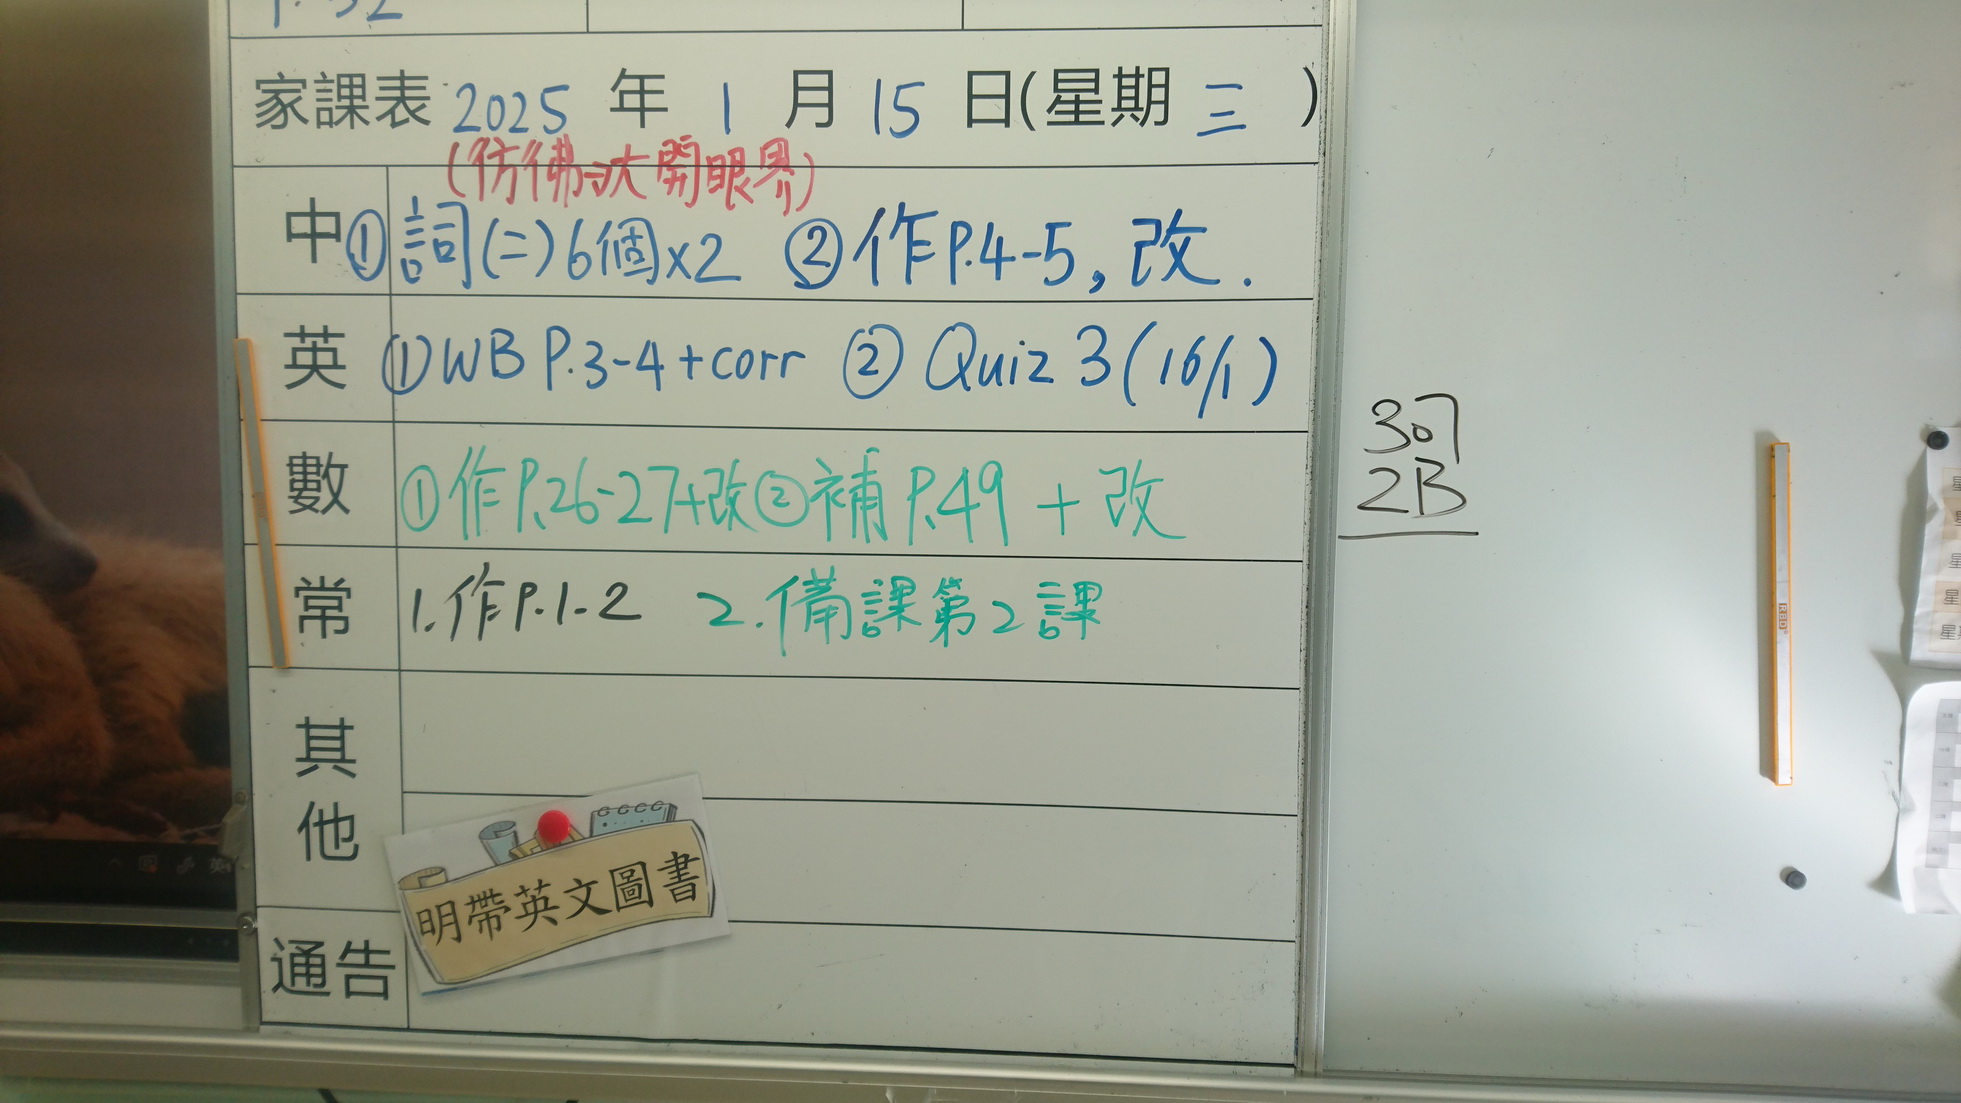 P. 32
家課表 2025 年 1 月 15 日(星期 三 )
(彷彿→大開眼界)
中 ① 詞(二)6個x2 ② 作P.4-5, 改.
英 ① WB P.3-4 + corr ② Quiz 3 (16/1)
數 ① 作P.26-27+改 ② 補 P.49 + 改
常 1. 作P.1-2 2. 備課第2課
其他
明帶英文圖書
通告
307
2B